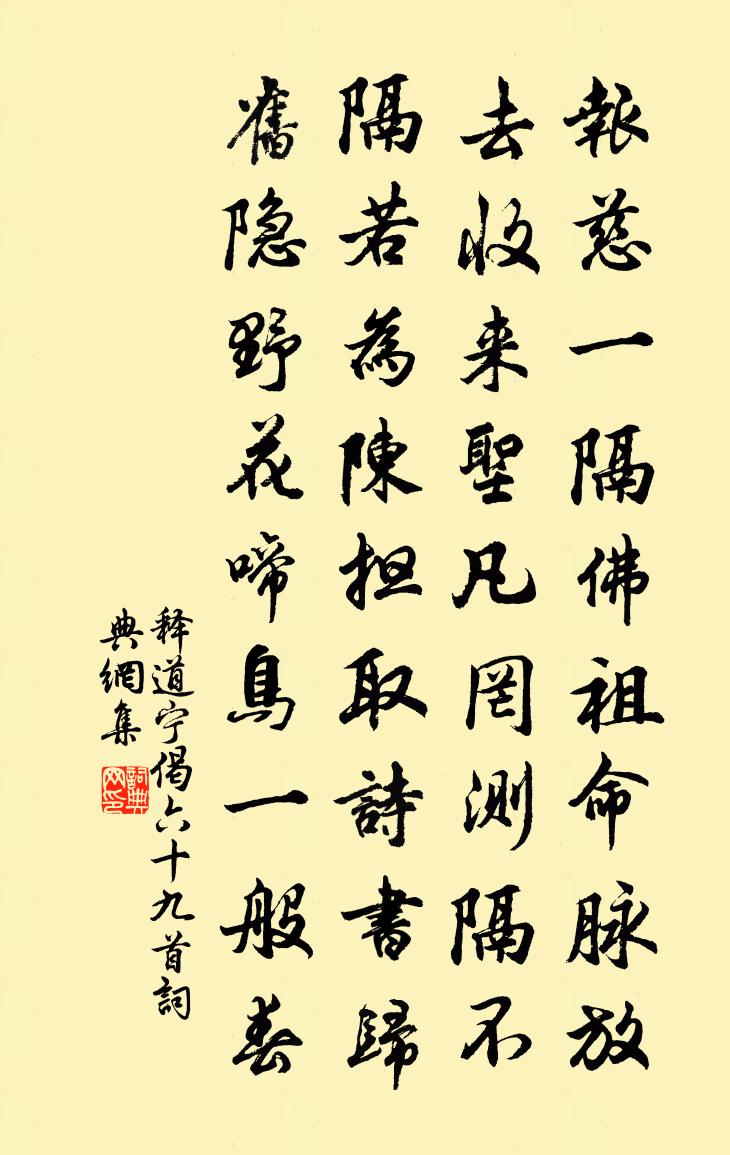 報慈一隔佛祖命脉放
去收来聖凡罔测隔不
隔若為陳担取詩書歸
舊隐野花啼鳥一般春
释道宁偈六十九首詞
典網集
詞典网印